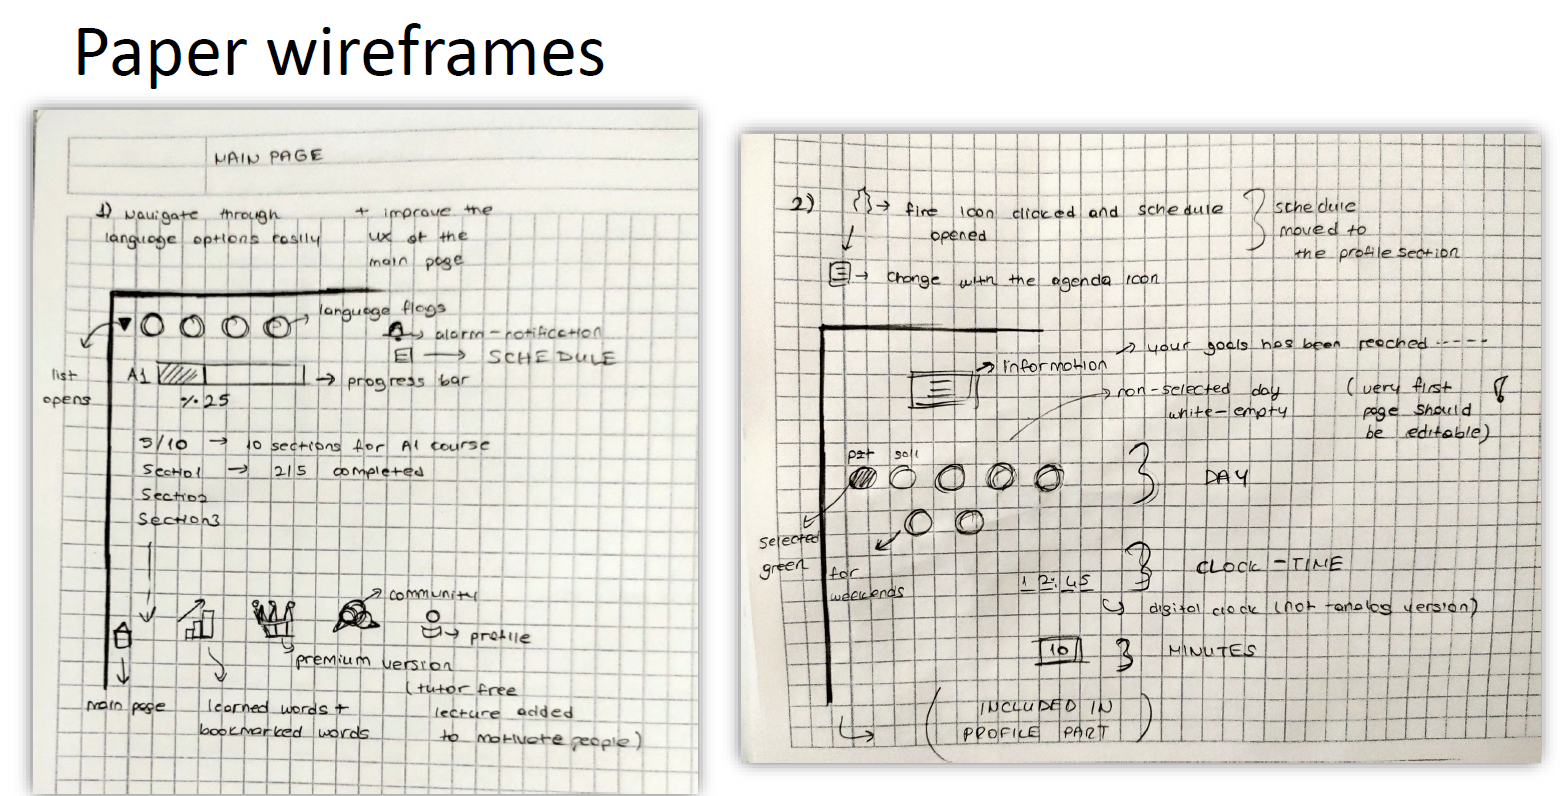 Paper wireframes
MAIN PAGE
1) Navigate through
language options easily
+ improve the
ux of the
main page
language flags
alarm-notification
SCHEDULE
list
opens
A1
progress bar
%25
3/10 → 10 sections for A1 course
Sectio1 → 2/5 completed
Sectio2
Section3
community
profile
premium version
(tutor free
lecture added
to motivate people)
main page
learned words +
bookmarked words
2)
→ fire icon clicked and schedule
opened
schedule
moved to
the profile section
→ change with the agenda icon
your goals has been reached -----
information
non-selected day
white-empty
(very first
page should
be editable)
!
pzt salı
DAY
selected
green
for
weekends
12:45
CLOCK - TIME
digital clock (not analog version)
10
MINUTES
(INCLUDED IN
PROFILE PART)